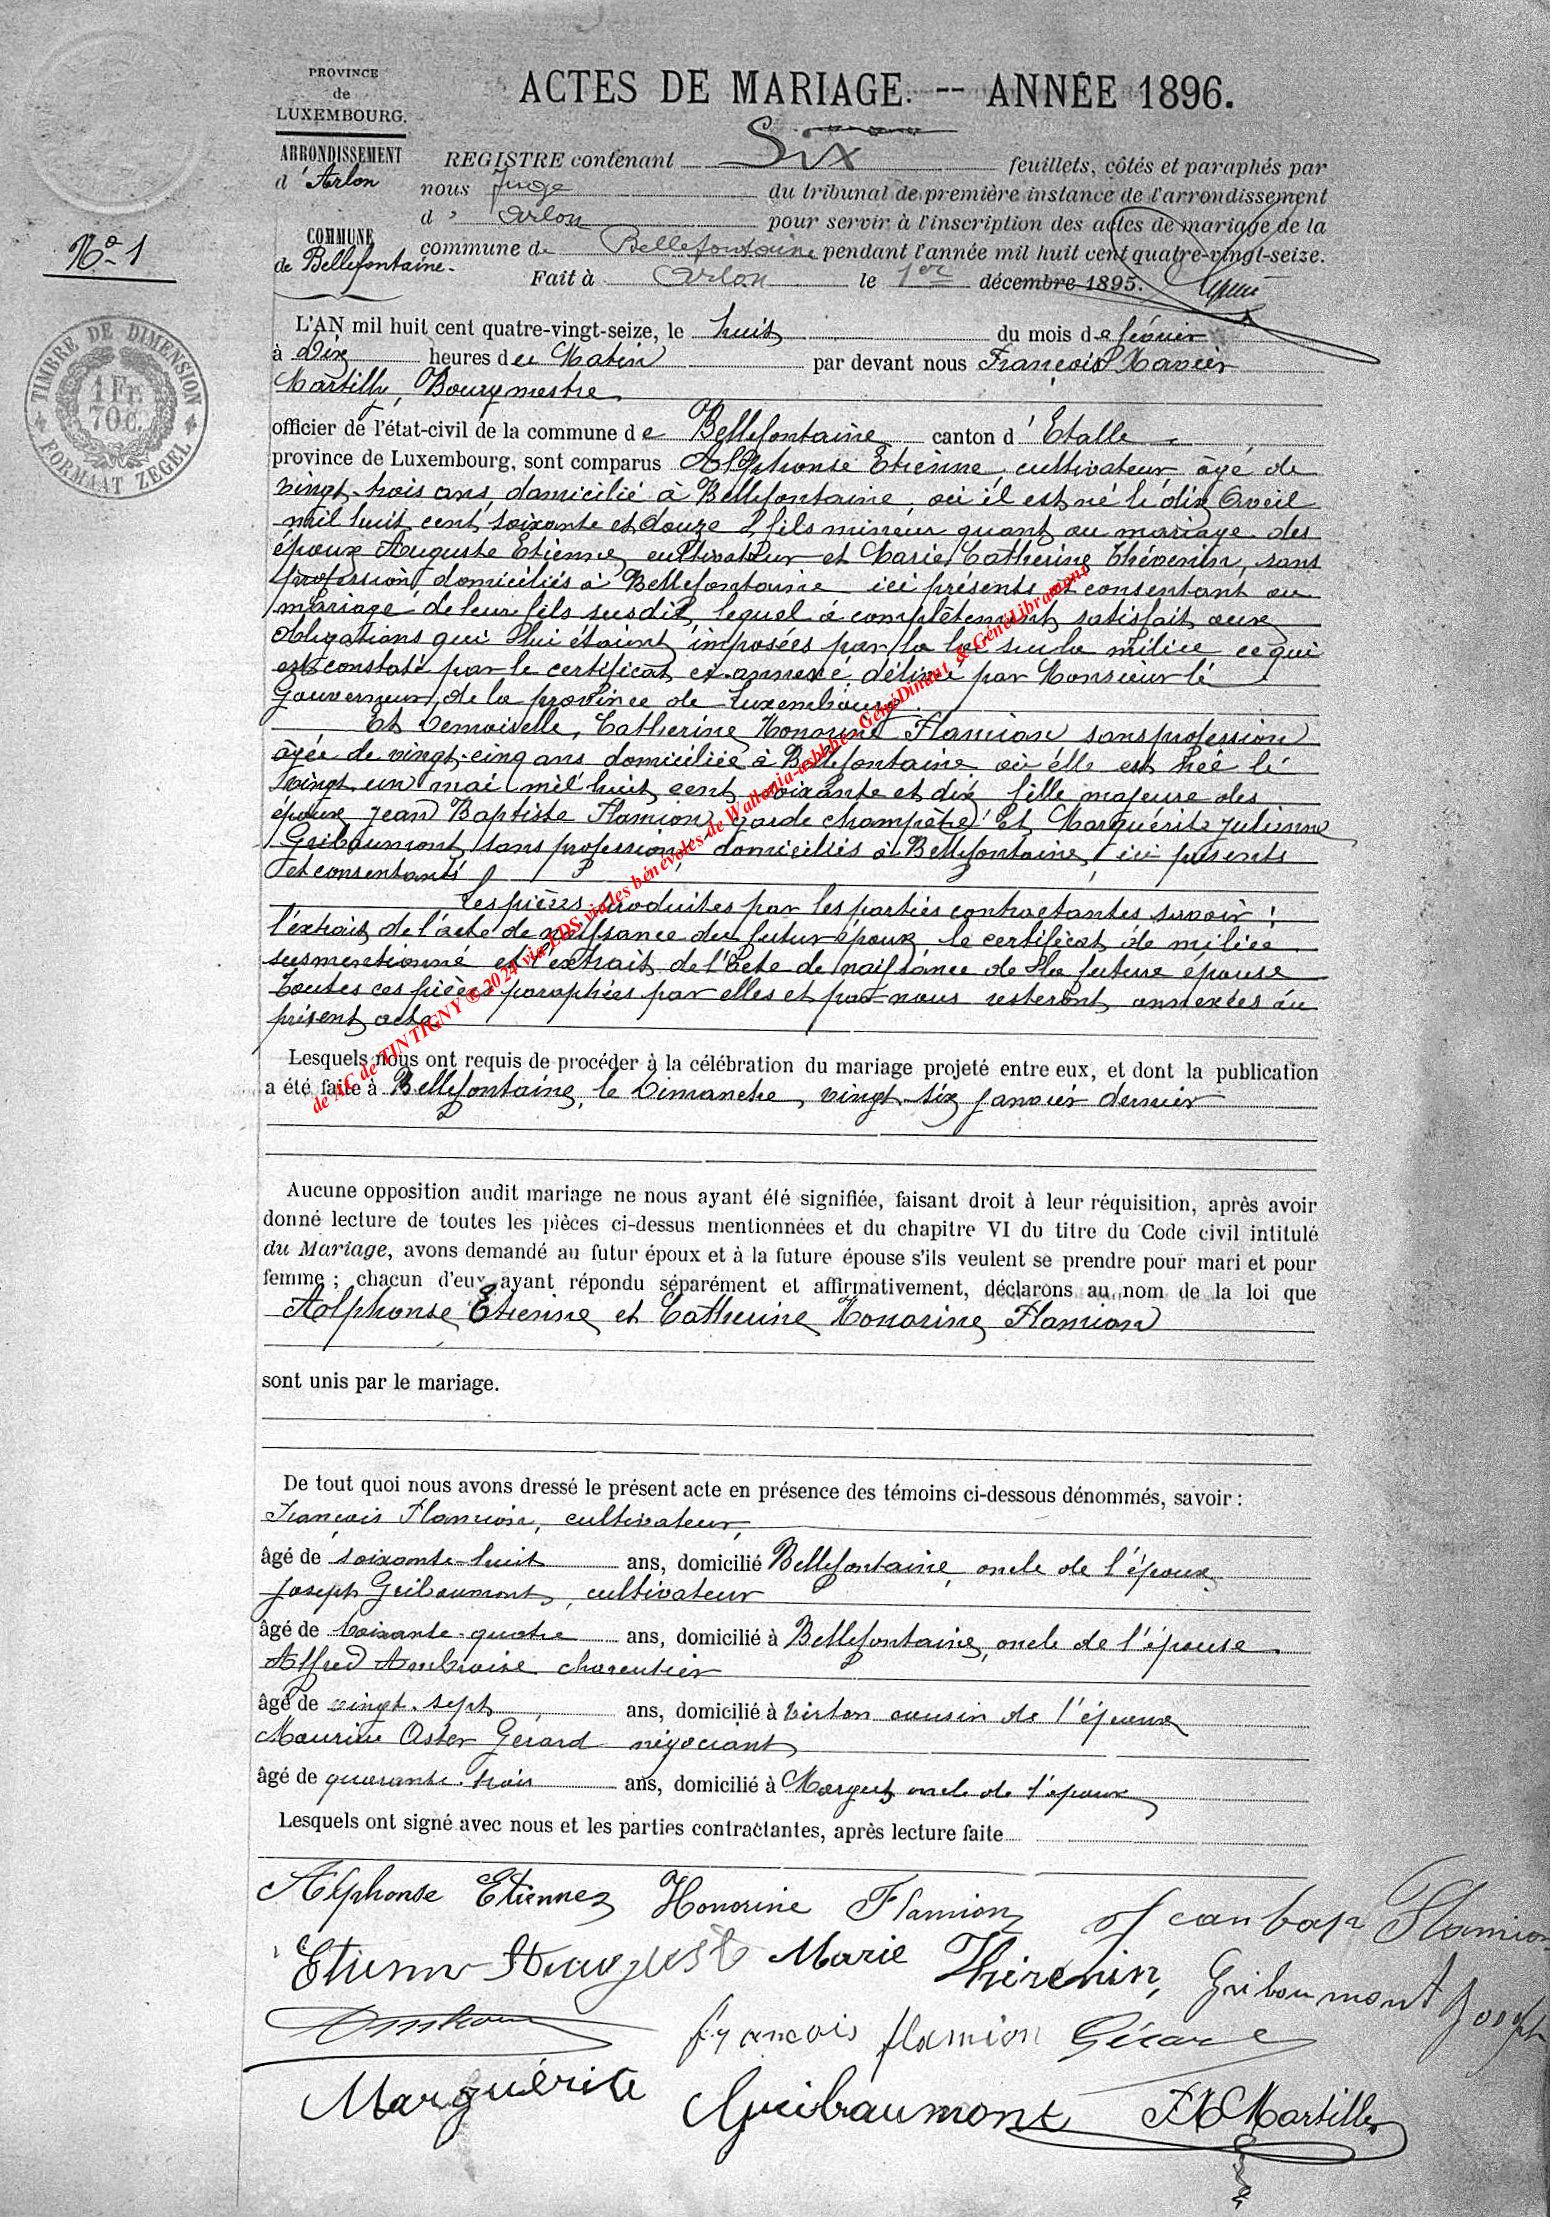 PROVINCE
de
LUXEMBOURG.
ARRONDISSEMENT
d'Arlon
COMMUNE
de Bellefontaine.
ACTES DE MARIAGE. -- ANNÉE 1896.
REGISTRE contenant Six feuillets, côtés et paraphés par
nous Juge du tribunal de première instance de l'arrondissement
d' Arlon pour servir à l'inscription des actes de mariage de la
commune de Bellefontaine pendant l'année mil huit cent quatre-vingt-seize.
Fait à Arlon le 1er décembre 1895.
No 1
TIMBRE DE DIMENSION
1 Fr.
70 c.
FORMAAT ZEGEL
L'AN mil huit cent quatre-vingt-seize, le huit du mois de février
à Dix heures du Matin par devant nous François Xavier
Martilly, Bourgmestre
officier de l'état-civil de la commune de Bellefontaine canton d'Etalle
province de Luxembourg, sont comparus Alphonse Etienne, cultivateur, âgé de
vingt-trois ans, domicilié à Bellefontaine, où il est né le dix Avril
mil huit cent soixante et douze, fils mineur quant au mariage des
époux Auguste Etienne, cultivateur et Marie Catherine Thévenin, sans
profession, domiciliés à Bellefontaine ici présents et consentant au
mariage de leur fils susdit, lequel a complètement satisfait aux
obligations qui lui étaient imposées par la loi sur la milice ce qui
est constaté par le certificat ci-annexé délivré par Monsieur le
Gouverneur de la province de Luxembourg.
Et Demoiselle, Catherine Honorine Flamion sans profession
âgée de vingt-cinq ans domiciliée à Bellefontaine où elle est née le
vingt un mai mil huit cent soixante et dix fille majeure des
époux Jean Baptiste Flamion, garde champêtre et Marguérite Julienne
Gribaumont, sans profession, domiciliés à Bellefontaine, ici présents
et consentants
Les pièces produites par les parties contractantes savoir :
l'extrait de l'acte de naissance du futur époux, le certificat de milice
susmentionné et l'extrait de l'acte de naissance de la future épouse
Toutes ces pièces paraphées par elles et par nous resteront annexées au
présent acte
Lesquels nous ont requis de procéder à la célébration du mariage projeté entre eux, et dont la publication
a été faite à Bellefontaine, le Dimanche, vingt-six janvier dernier
Aucune opposition audit mariage ne nous ayant été signifiée, faisant droit à leur réquisition, après avoir
donné lecture de toutes les pièces ci-dessus mentionnées et du chapitre VI du titre du Code civil intitulé
du Mariage, avons demandé au futur époux et à la future épouse s'ils veulent se prendre pour mari et pour
femme ; chacun d'eux ayant répondu séparément et affirmativement, déclarons au nom de la loi que
Alphonse Etienne et Catherine Honorine Flamion
sont unis par le mariage.
De tout quoi nous avons dressé le présent acte en présence des témoins ci-dessous dénommés, savoir :
François Flamion, cultivateur,
âgé de soixante-huit ans, domicilié Bellefontaine, oncle de l'époux
Joseph Gribaumont, cultivateur
âgé de soixante-quatre ans, domicilié à Bellefontaine, oncle de l'épouse.
Alfred Ambroise charentier
âgé de vingt-sept ans, domicilié à Virton cousin de l'époux
Maurice Oster Gérard négociant
âgé de quarante-trois ans, domicilié à Margut oncle de l'époux
Lesquels ont signé avec nous et les parties contractantes, après lecture faite
Alphonse Etienne Honorine Flamion Jean bap Flamion
Etienne Auguste Marie Thévenin, Gribaumont Joseph
Ambroise françois flamion Gérard
Marguérite Gribaumont FX Martilly
de AC de TINTIGNY © 2024 via FDS via les bénévoles de Wallonia-asbl.be - GénéDinant & GénéLibramont